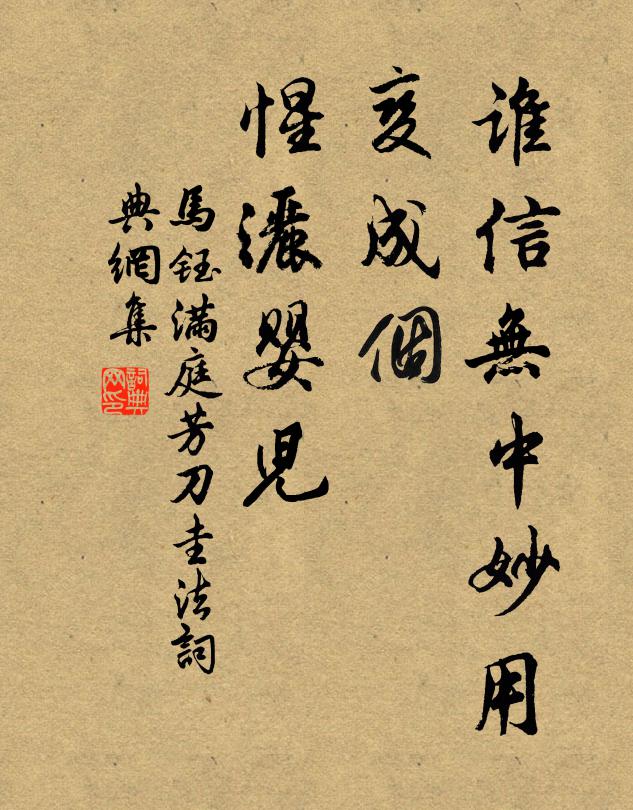 誰信無中妙用
变成個
惺灑嬰児
馬鈺滿庭芳刀圭法詞
典網集
詞典
网印